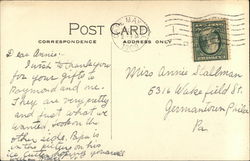 POST CARD
CORRESPONDENCE
ADDRESS ONLY
MAY
Dear Annie:
I wish to thank you
for your gifts to
Raymond and me.
They are very pretty
and just what we
wanted. Look on the
other side.
in the picture on his
Miss Annie Stallman
5316 Wakefield St.
Germantown Phila
Pa.